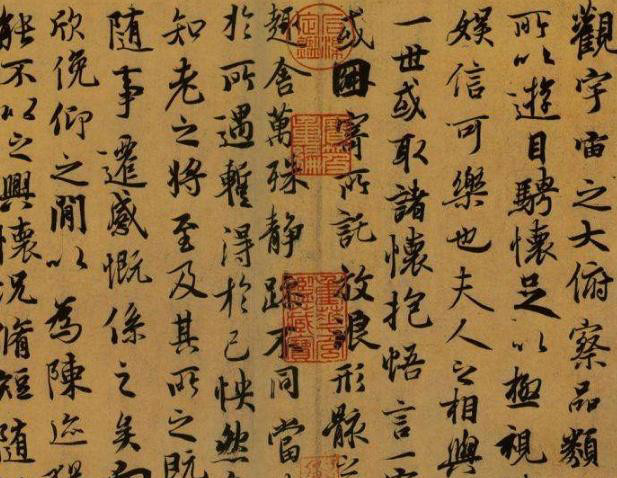 觀宇宙之大俯察品類
所以遊目騁懷足以極視
娛信可樂也夫人之相與
一世或取諸懷抱悟言一
或因寄所託放浪形骸之
趣舍萬殊靜躁不同當
於所遇蹔得於己怏然
知老之將至及其所之既
隨事遷感慨係之矣
欣俛仰之閒以為陳迹
能不以之興懷況脩短隨